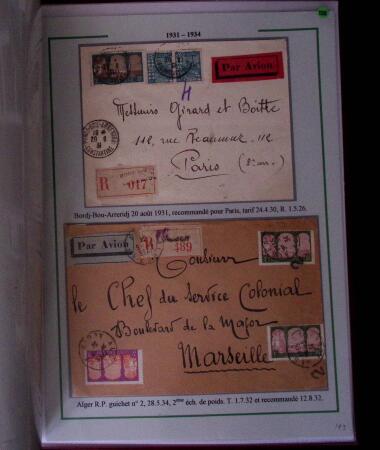 1931 – 1934
Par Avion
Messieurs Girard et Boitte
112, rue Réaumur, 112
Paris (2e arr.)
BORDJ-BOU-ARRERIDJ
CONSTANTINE
R
017
Bordj-Bou-Arreridj 20 août 1931, recommandé pour Paris, tarif 24.4.30, R. 1.5.26.
Par Avion
R
489
Monsieur
le Chef du Service Colonial
Boulevard de la Major
Marseille
Alger R.P. guichet n° 2, 28.5.34, 2ème éch. de poids. T. 1.7.32 et recommandé 12.8.32.